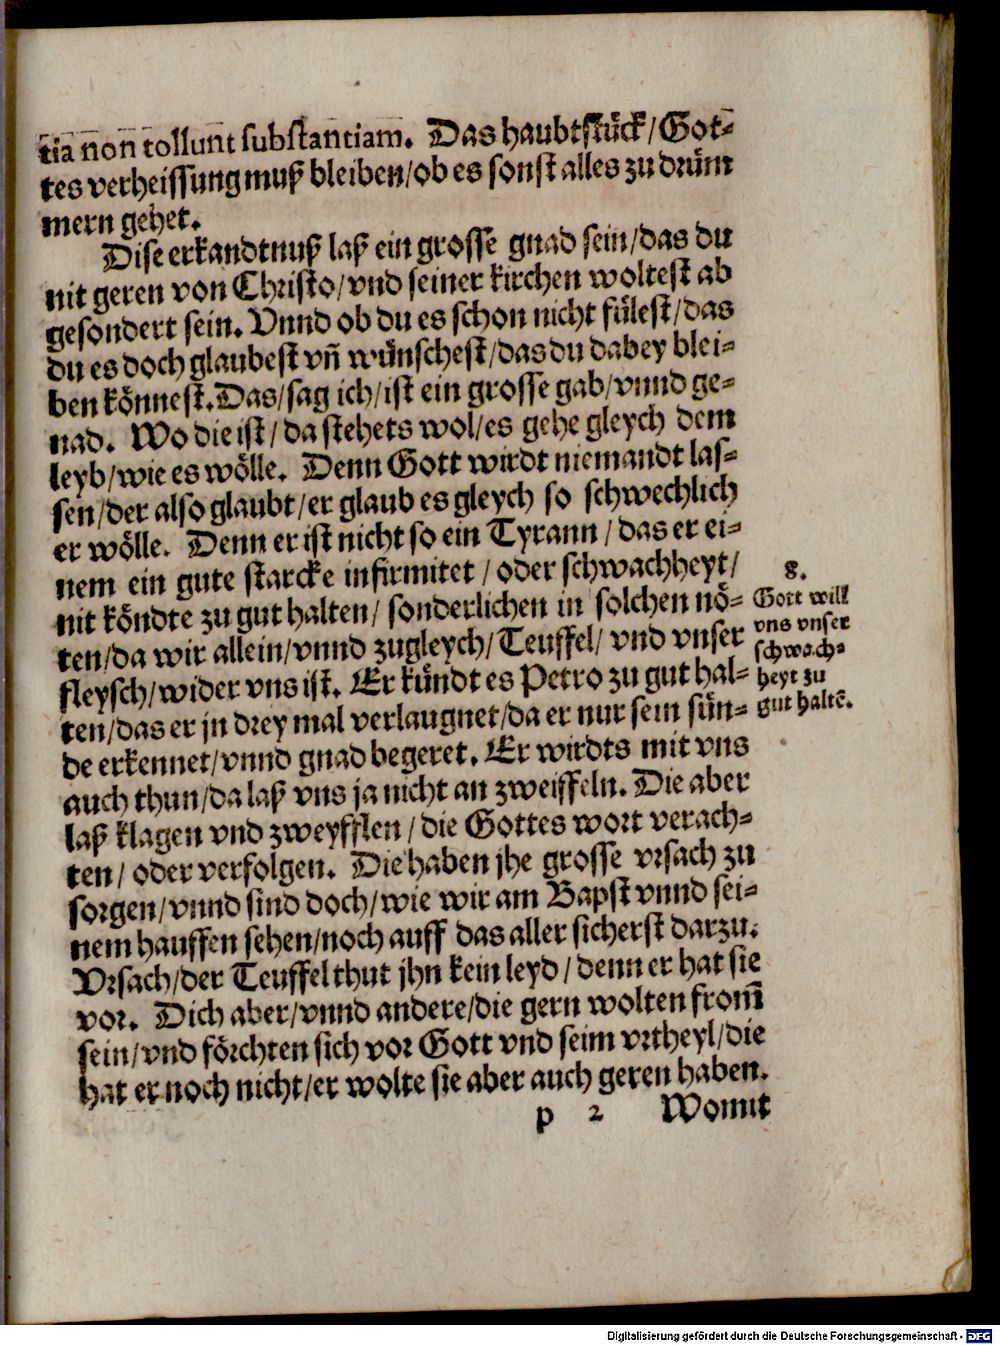 tia non tollunt substantiam. Das haubtstück/Got-
tes verheissung muß bleiben/ob es sonst alles zu drüm
mern gehet.
Dise erkandtnuß laß ein grosse gnad sein/das du
nit geren von Christo/vnd seiner kirchen woltest ab
gesondert sein. Vnnd ob du es schon nicht fülest/das
du es doch glaubest vñ wünschest/das du dabey blei-
ben könnest. Das/sag ich/ist ein grosse gab/vnnd ge-
nad. Wo die ist/da stehets wol/es gehe gleych dem
leyb/wie es wölle. Denn Gott wirdt niemandt las-
sen/der also glaubt/er glaub es gleych so schwechlich
er wölle. Denn er ist nicht so ein Tyrann/das er ei-
nem ein gute starcke infirmitet/oder schwachheyt/
nit köndte zu gut halten/sonderlichen in solchen nö-
ten/da wir allein/vnnd zugleych/Teuffel/vnd vnser
fleysch/wider vns ist. Er kündt es Petro zu gut hal-
ten/das er jn drey mal verlaugnet/da er nur sein sün-
de erkennet/vnnd gnad begeret. Er wirdts mit vns
auch thun/da laß vns ja nicht an zweiffeln. Die aber
laß klagen vnd zweyfflen/die Gottes wort verach-
ten/oder verfolgen. Die haben jhe grosse vrsach zu
sorgen/vnnd sind doch/wie wir am Bapst vnnd sei-
nem hauffen sehen/noch auff das aller sicherst darzu.
Vrsach/der Teuffel thut jhn kein leyd/denn er hat sie
vor. Dich aber/vnnd andere/die gern wolten from̃
sein/vnd förchten sich vor Gott vnd seim vrtheyl/die
hat er noch nicht/er wolte sie aber auch geren haben.
p 2 Womit
8.
Gott will
vns vnser
schwach-
heyt zu
gut haltẽ.
Digitalisierung gefördert durch die Deutsche Forschungsgemeinschaft - DFG